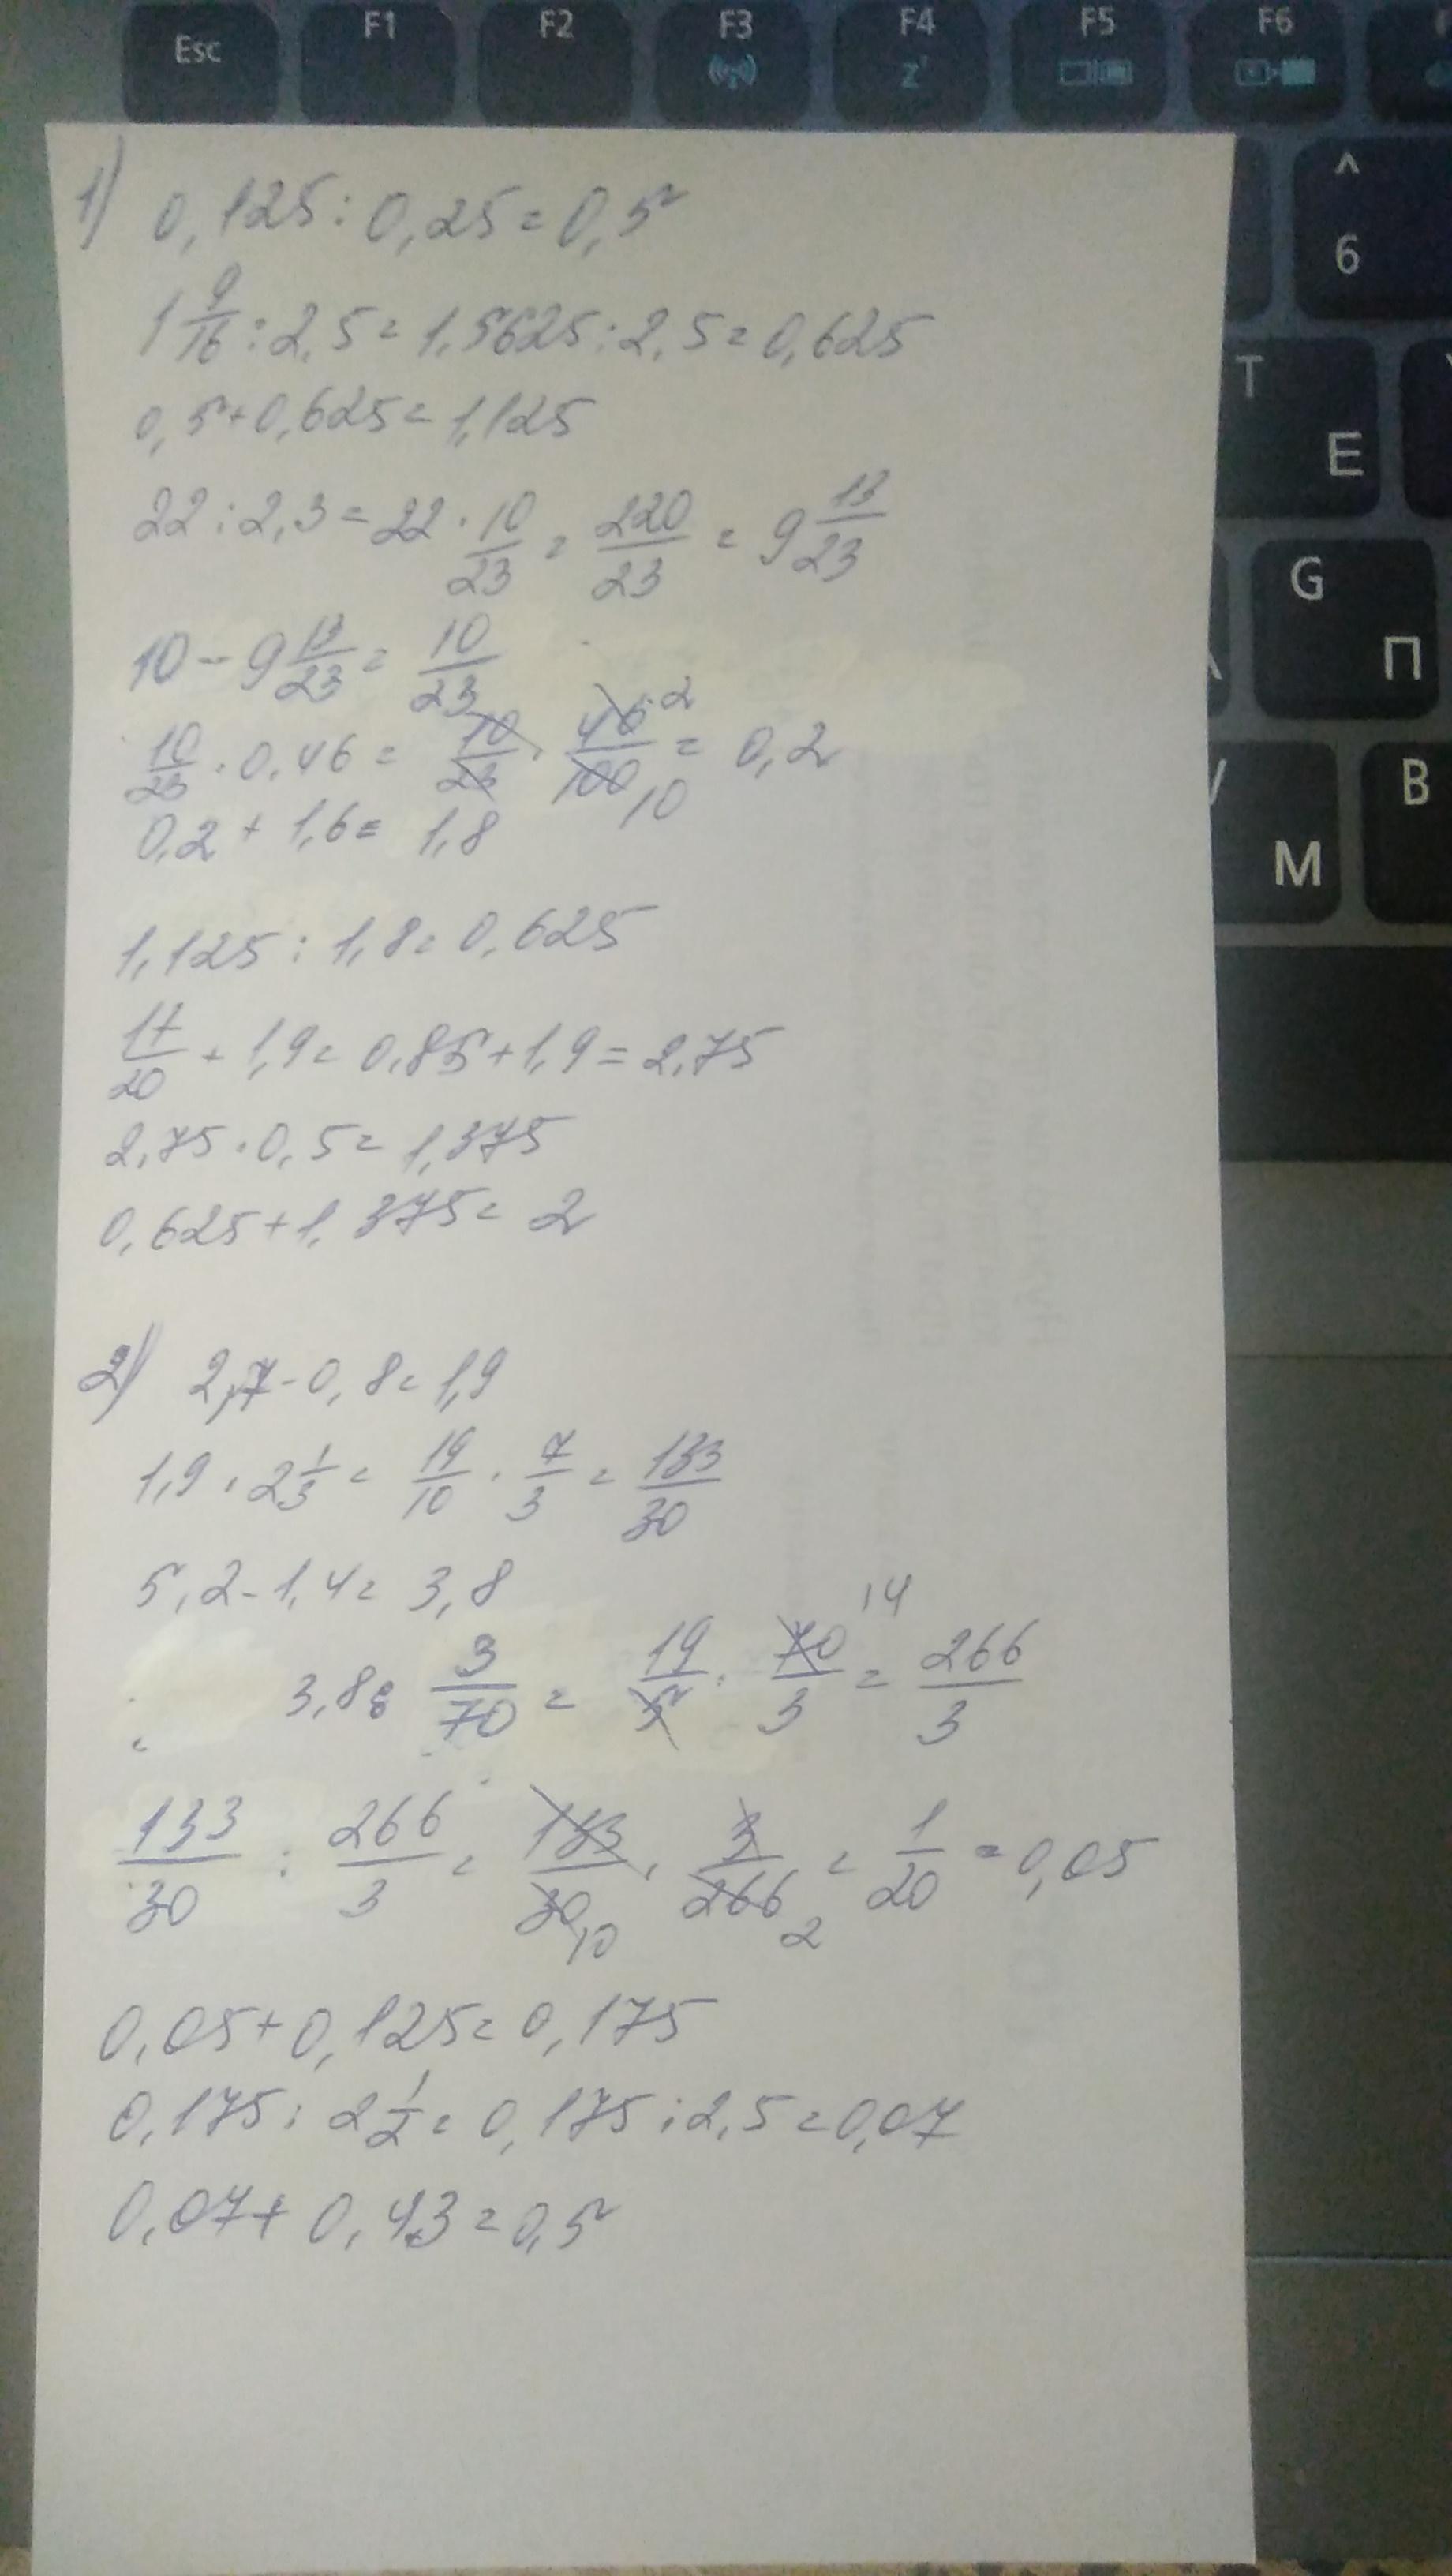 Esc F1 F2 F3 F4 F5 F6
z²
^
6
T
Е
G
П
V
М
B
1) 0,125 : 0,25 = 0,5
1 9/16 : 2,5 = 1,5625 : 2,5 = 0,625
0,5 + 0,625 = 1,125
22 : 2,3 = 22 · 10/23 = 220/23 = 9 13/23
10 - 9 13/23 = 10/23
10/23 · 0,46 = 10/23 · 46/100 = 0,2
2
10
0,2 + 1,6 = 1,8
1,125 : 1,8 = 0,625
17/20 + 1,9 = 0,85 + 1,9 = 2,75
2,75 · 0,5 = 1,375
0,625 + 1,375 = 2
2) 2,7 - 0,8 = 1,9
1,9 · 2 1/3 = 19/10 · 7/3 = 133/30
5,2 - 1,4 = 3,8
14
3,8 : 3/70 = 19/5 · 70/3 = 266/3
133/30 : 266/3 = 133/30 · 3/266 = 1/20 = 0,05
10 2
0,05 + 0,125 = 0,175
0,175 : 2 1/2 = 0,175 : 2,5 = 0,07
0,07 + 0,43 = 0,5